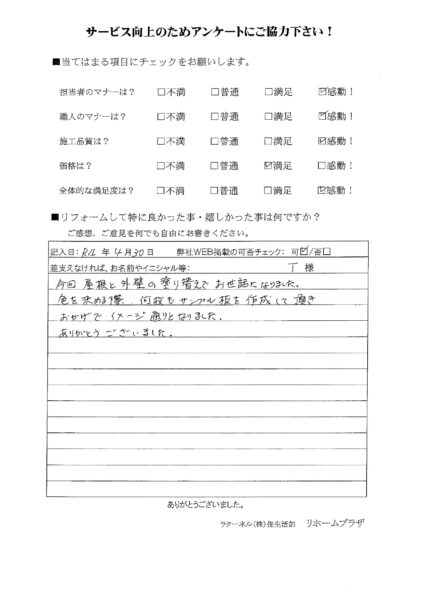 サービス向上のためアンケートにご協力下さい！
■当てはまる項目にチェックをお願いします。
担当者のマナーは？ □不満 □普通 □満足 ☑感動！
職人のマナーは？ □不満 □普通 □満足 ☑感動！
施工品質は？ □不満 □普通 □満足 ☑感動！
価格は？ □不満 □普通 ☑満足 □感動！
全体的な満足度は？ □不満 □普通 □満足 ☑感動！
■リフォームして特に良かった事・嬉しかった事は何ですか？
ご感想、ご意見を何でも自由にお書きください。
記入日：R4 年 4月30日 弊社WEB掲載の可否チェック： 可☑/否□
差支えなければ、お名前やイニシャル等： T 様
今回 屋根と外壁の塗り替えでお世話になりました。
色を決める際、何枚もサンプル板を作成して頂き
おかげで イメージ通りとなりました。
ありがとうございました。
ありがとうございました。
ラクーネル（株）住生活部 リホームプラザ